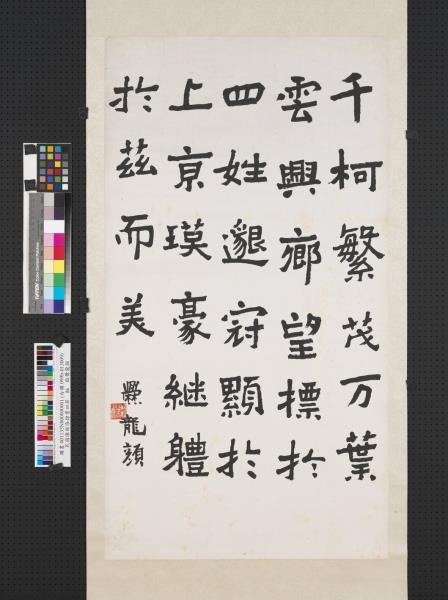 千柯繁茂万葉
雲興鄉望標於
四姓邈冠顯於
上京瑛豪継軆
於茲而美
爨龍顏